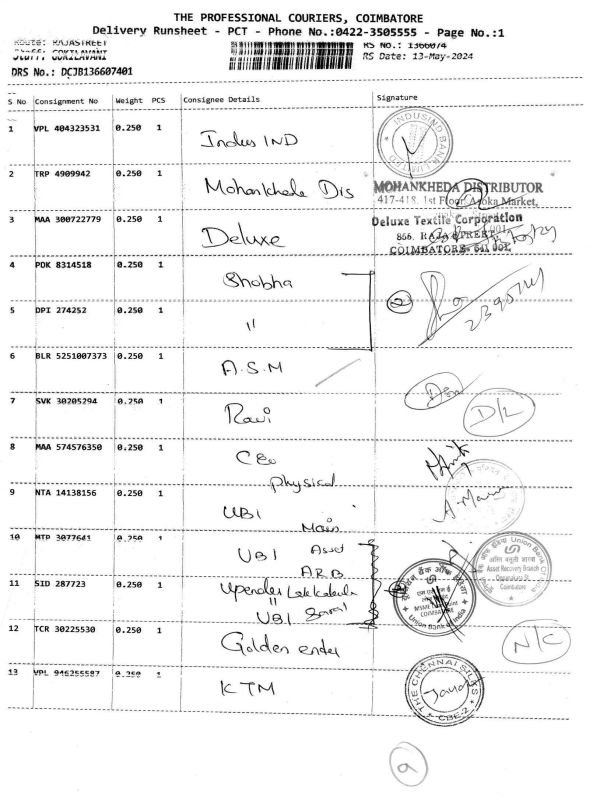 THE PROFESSIONAL COURIERS, COIMBATORE
Delivery Runsheet - PCT - Phone No.:0422-3505555 - Page No.:1
Route: RAJASTREET
Staff: GOKILAVANI
RS No.: 1366074
RS Date: 13-May-2024
DRS No.: DCJB136607401
S No Consignment No Weight PCS Consignee Details Signature
1 VPL 404323531 0.250 1 Indus IND
INDUSIND BANK LTD
2 TRP 4909942 0.250 1 Mohankheda Dis
MOHANKHEDA DISTRIBUTOR
417-418, 1st Floor, Asoka Market,
3 MAA 300722779 0.250 1 Deluxe
Deluxe Textile Corporation
856, RAJA STREET
COIMBATORE- 641 001.
4 PDK 8314518 0.250 1 Shobha
5 DPI 274252 0.250 1 "
2
6 BLR 5251007373 0.250 1 A.S.M
7 SVK 30205294 0.250 1 Ravi
D/L
8 MAA 574576350 0.250 1
Physical
9 NTA 14138156 0.250 1 UBI
Main
10 MTP 3077641 0.250 1 UBI Asset
A.R.B
Union Bank
Asset Recovery Branch
Oppanakara St.
Coimbatore
11 SID 287723 0.250 1 Upender
"
UBI
यूनियन बैंक ऑफ इंडिया
COIMBATORE
Union Bank of India
12 TCR 30225530 0.250 1 Golden enter
N/C
13 VPL 946255587 0.250 1 KTM
THE CHENNAI SILKS
CBE-2
a